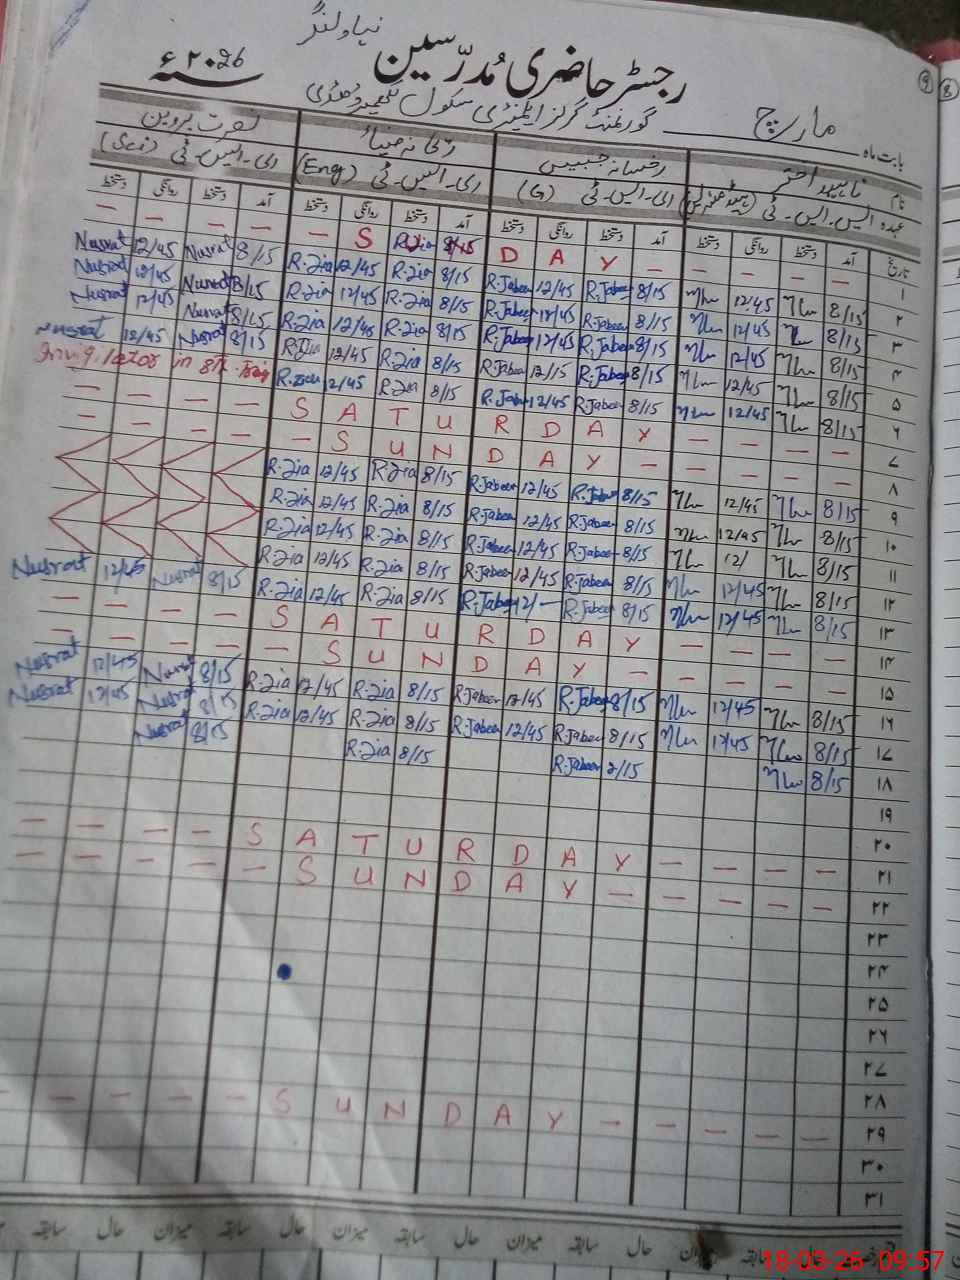 نیا ولنگر
رجسٹر حاضری مُدرّسین ۲۰26ء
گورنمنٹ گرلز ایلیمنٹری سکول
بابت ماہ مارچ
نام ناہید اختر رخسانہ جبیں نصرت پروین
عہدہ ایس۔ایس۔ٹی ای۔ایس۔ٹی (G) ای۔ایس۔ٹی (Eng) ای۔ایس۔ٹی (Sci)
تاریخ آمد دستخط روانگی دستخط آمد دستخط روانگی دستخط آمد دستخط روانگی دستخط آمد دستخط روانگی دستخط
— — — — S U N D A Y — — — — — ۱
Nusrat 12/45 Nusrat 8/15 R.Zia 12/45 R.Zia 8/15 R.Jabeen 12/45 R.Jabeen 8/15 12/45 8/15 ۲
Nusrat 12/45 Nusrat 8/15 R.Zia 12/45 R.Zia 8/15 R.Jabeen 12/45 R.Jabeen 8/15 12/45 8/15 ۳
Nusrat 12/45 Nusrat 8/15 R.Zia 12/45 R.Zia 8/15 R.Jabeen 12/45 R.Jabeen 8/15 12/45 8/15 ۴
Nusrat 12/45 Nusrat 8/15 R.Zia 12/45 R.Zia 8/15 R.Jabeen 12/15 R.Jabeen 8/15 12/45 8/15 ۵
Invigilator in 8th R.Zia 12/45 R.Zia 8/15 R.Jabeen 12/45 R.Jabeen 8/15 12/45 8/15 ۶
— — — — S A T U R D A Y — — — — ۷
— — — — — S U N D A Y — — — — — ۸
R.Zia 12/45 R.Zia 8/15 R.Jabeen 12/45 R.Jabeen 8/15 12/45 8/15 ۹
R.Zia 12/45 R.Zia 8/15 R.Jabeen 12/45 R.Jabeen 8/15 12/45 8/15 ۱۰
R.Zia 12/45 R.Zia 8/15 R.Jabeen 12/45 R.Jabeen 8/15 12/ 8/15 ۱۱
Nusrat 12/45 Nusrat 8/15 R.Zia 12/45 R.Zia 8/15 R.Jabeen 12/45 R.Jabeen 8/15 12/45 8/15 ۱۲
R.Zia 12/45 R.Zia 8/15 R.Jabeen 12/— R.Jabeen 8/15 12/45 8/15 ۱۳
— — — — S A T U R D A Y — — — — ۱۴
— — — — — S U N D A Y — — — — — ۱۵
Nusrat 12/45 Nusrat 8/15 R.Zia 12/45 R.Zia 8/15 R.Jabeen 12/45 R.Jabeen 8/15 12/45 8/15 ۱۶
Nusrat 12/45 Nusrat 8/15 R.Zia 12/45 R.Zia 8/15 R.Jabeen 12/45 R.Jabeen 8/15 12/45 8/15 ۱۷
Nusrat 8/15 R.Zia 8/15 R.Jabeen 8/15 8/15 ۱۸
۱۹
۲۰
— — — — S A T U R D A Y — — — — ۲۱
— — — — — S U N D A Y — — — — — ۲۲
۲۳
۲۴
۲۵
۲۶
۲۷
۲۸
— — — — — S U N D A Y — — — — — ۲۹
۳۰
۳۱
سابقہ حال میزان سابقہ حال میزان سابقہ حال میزان سابقہ حال میزان
18-03-26 09:57